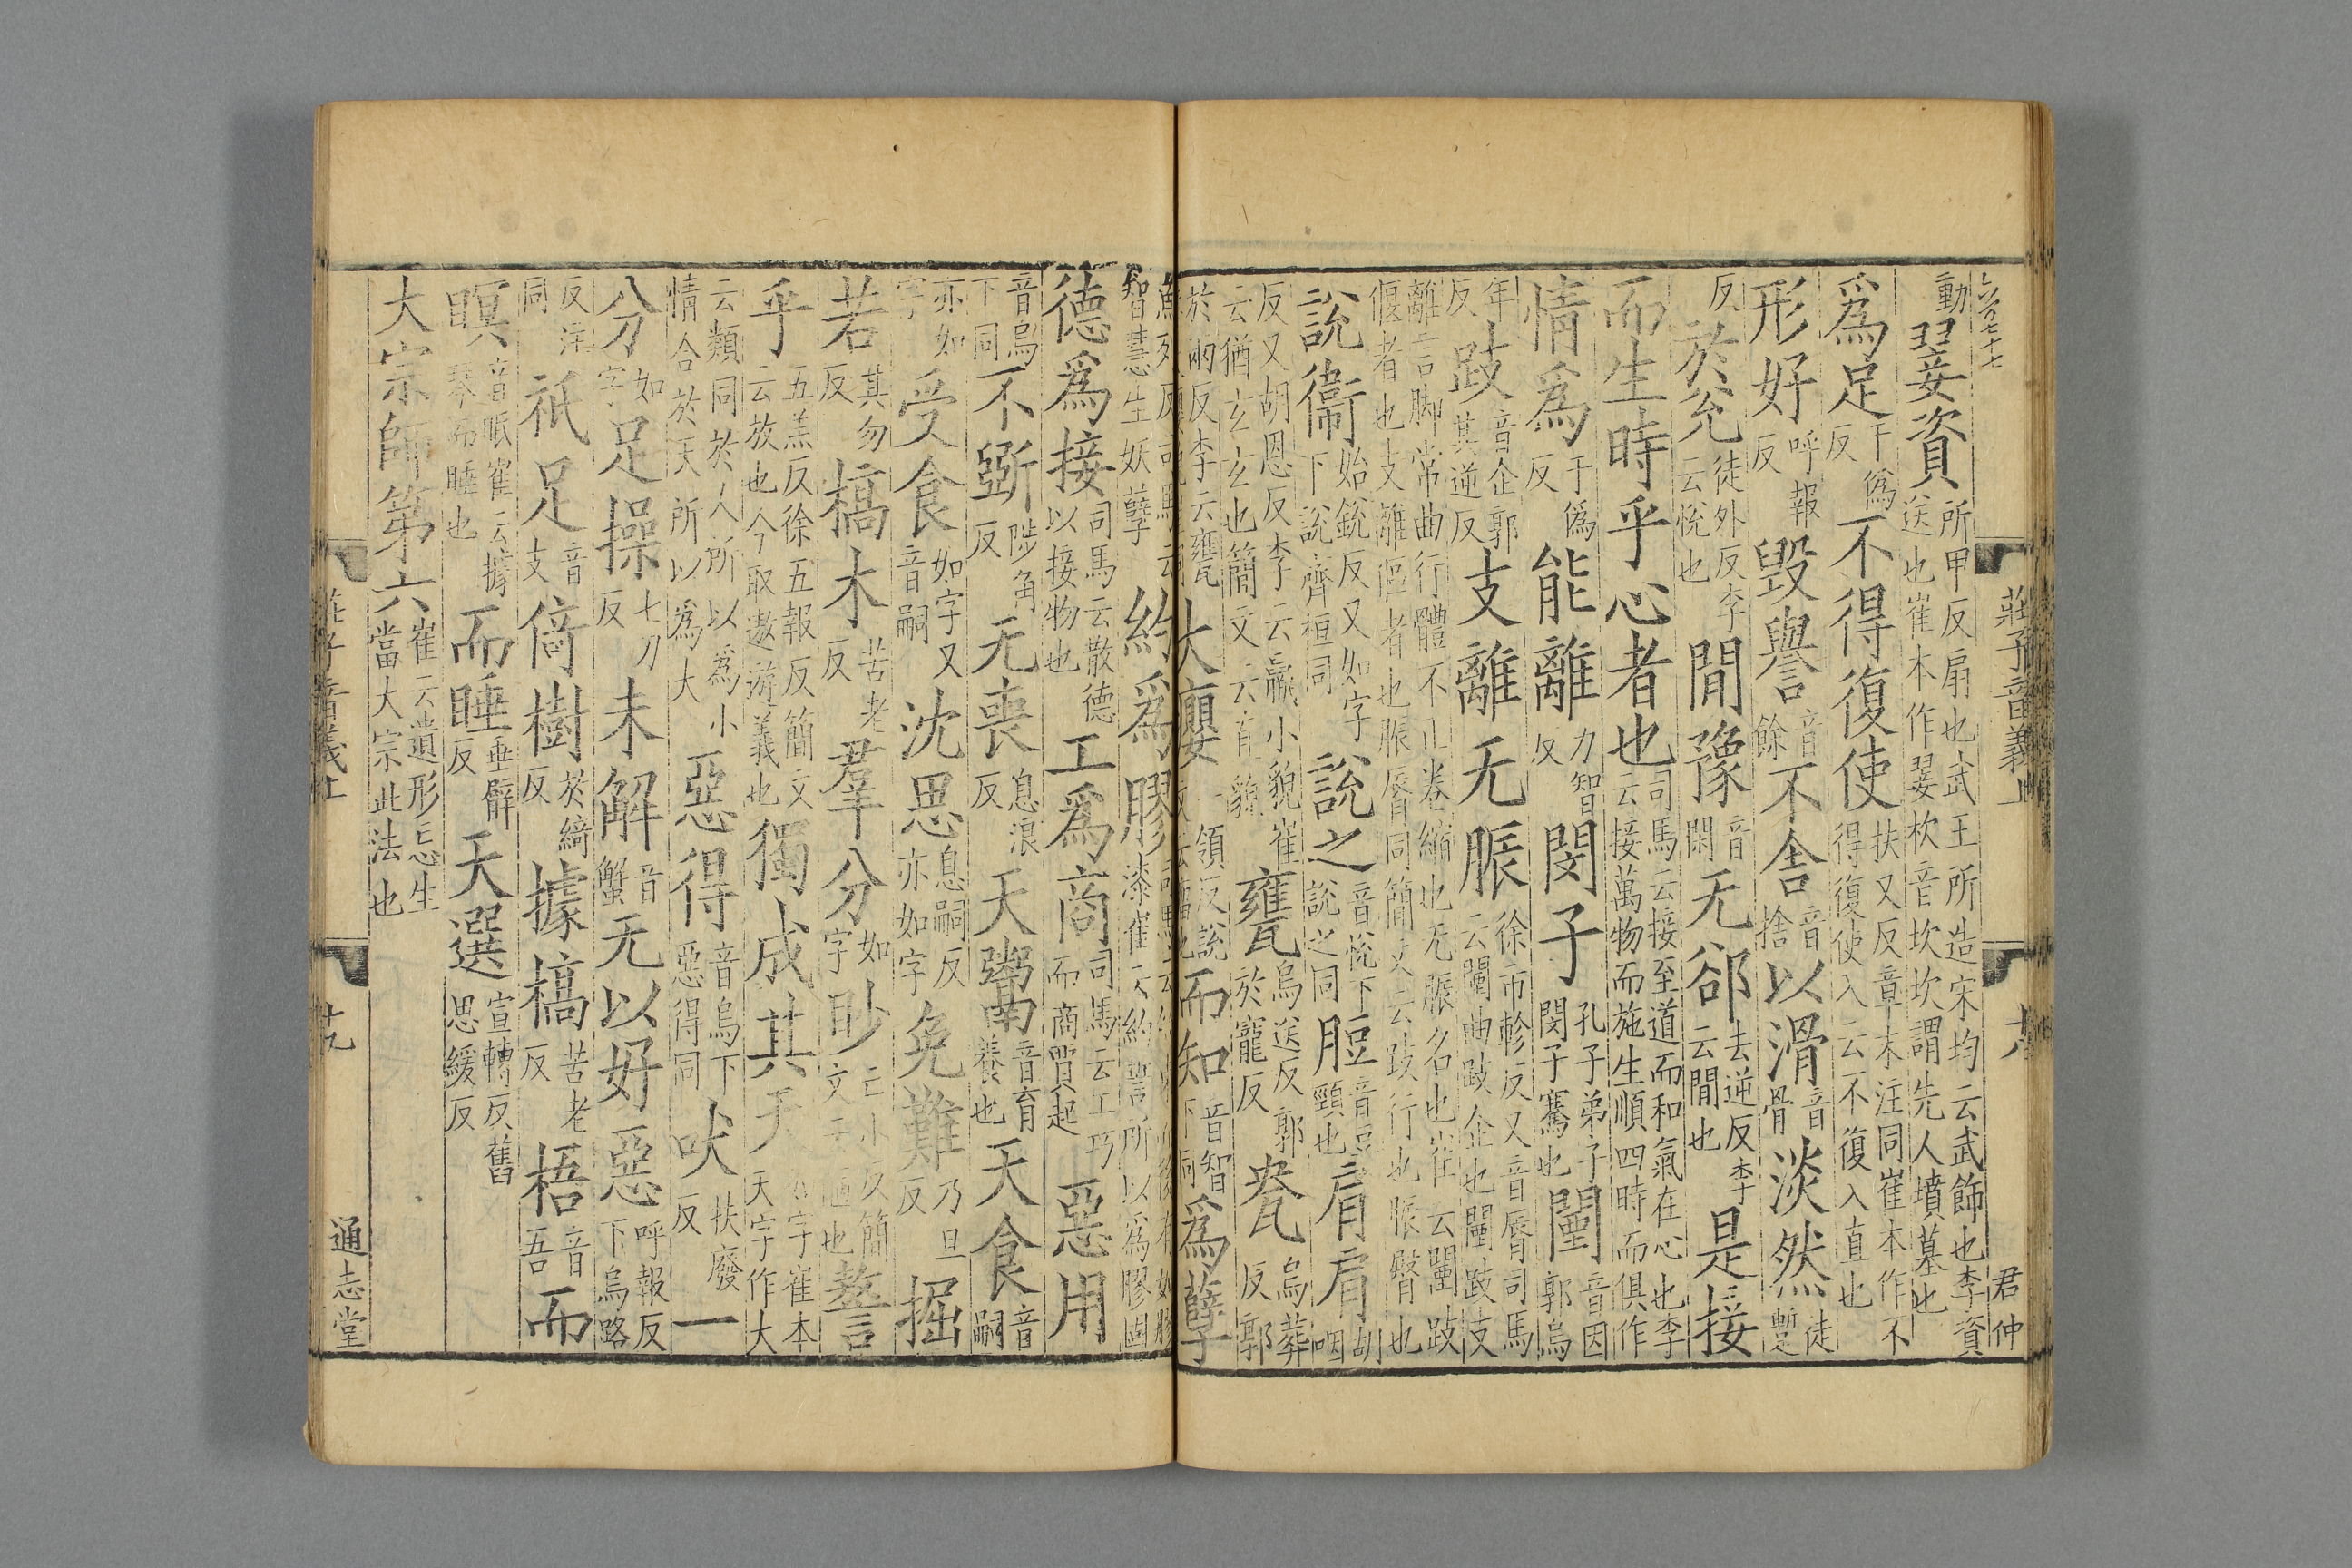 六百七十七
莊子音義上
君仲
動翣資所甲反扇也武王所造宋均云武飾也李資送也崔本作翣枚音坎坎謂先人墳墓也
爲足于僞反不得復使扶又反章末注同崔本作不得復使入云不復入直也
形好呼報反毀譽音餘不舍音捨以滑音骨淡然徒暫
反於兊徒外反李云悅也閒豫音閑无郤去逆反李云閒也是接
而生時乎心者也司馬云接至道而和氣在心也李云接萬物而施生順四時而俱作
情爲于僞反能離力智反閔子孔子弟子閔子騫也闉音因郭烏
年反跂音企郭其逆反支離无脤徐市軫反又音脣司馬云闉曲跂企也闉跂支
離言脚常曲行體不正卷縮也无脤名也崔云闉跂偃者也支離傴者也脤脣同簡文云跂行也脤臀也
說衞始銳反又如字下說齊桓同說之音悅下說之同脰音豆頸也肩肩胡咽
反又胡恩反李云羸小貌崔云猶玄玄也簡文云直貌甕烏送反郭於寵反㼜烏葬反郭
於兩反李云甕大癭一領反說文云瘤也而知音智下同爲孽
魚列反司馬云智慧生妖孽約爲膠司馬云約束而後有如膠漆崔云約誓所以爲膠固
德爲接司馬云散德以接物也工爲商司馬云工巧而商賈起惡用
音烏下同不斲陟角反无喪息浪反天鬻音育養也天食音嗣
亦如字受食如字又音嗣沈思息嗣反亦如字免難乃旦反掘
若其勿反槁木苦老反羣分如字眇亡小反簡文云陋也謷
乎五羔反徐五報反簡文云放也今取遨遊義也獨成其天如字崔本天字作大
云類同於人所以爲小情合於天所以爲大惡得音烏下惡得同吠扶廢反一
分如字足操七刀反未解音蟹无以好惡呼報反下烏路
反注同祇足音支倚樹於綺反據槁苦老反梧音吾而
瞑音眠崔云據琴而睡也而睡垂臂反天選宣轉反舊思緩反
大宗師第六崔云遺形忘生當大宗此法也
莊子音義上
十九
通志堂